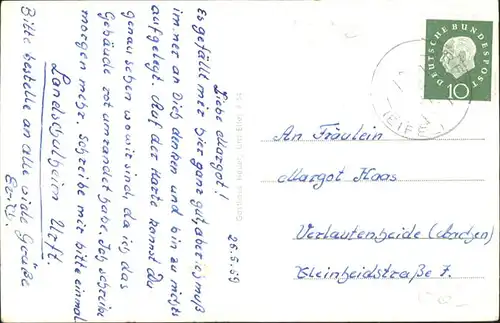 26.5.59
Liebe Margot!
Es gefällt mir hier ganz gut, aber ich muß
immer an Dich denken und bin zu nichts
aufgelegt. Auf der Karte kannst Du
genau sehen wo wir sind, da ich das
Gebäude rot umrandet habe. Ich schreibe
morgen mehr. Schreibe mir bitte einmal
Landschulheim Urft.
Bitte bestelle an alle viele Grüße
DEUTSCHE BUNDESPOST
10
(EIFEL)
An Fräulein
Margot Haas
Verlautenheide (Aachen)
Kleinheidstraße 7.